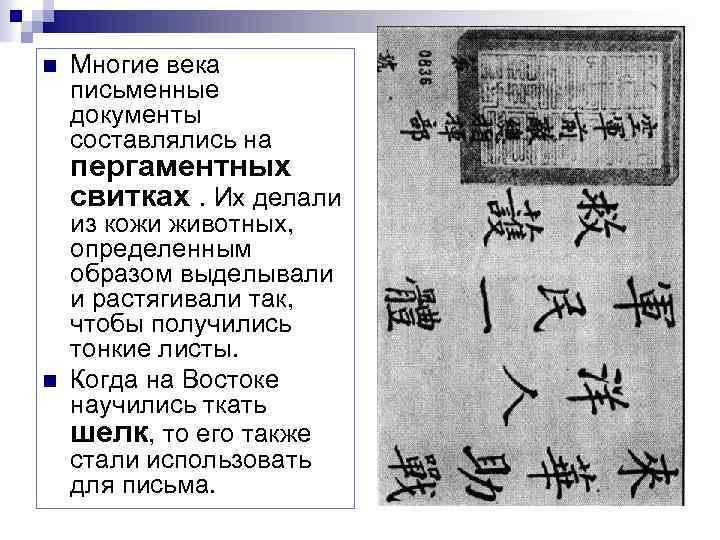 Многие века
письменные
документы
составлялись на
пергаментных
свитках . Их делали
из кожи животных,
определенным
образом выделывали
и растягивали так,
чтобы получились
тонкие листы.
Когда на Востоке
научились ткать
шелк, то его также
стали использовать
для письма.
來華助戰
洋人
軍民一體
救護
空軍前敵總指揮部
第
0836
號